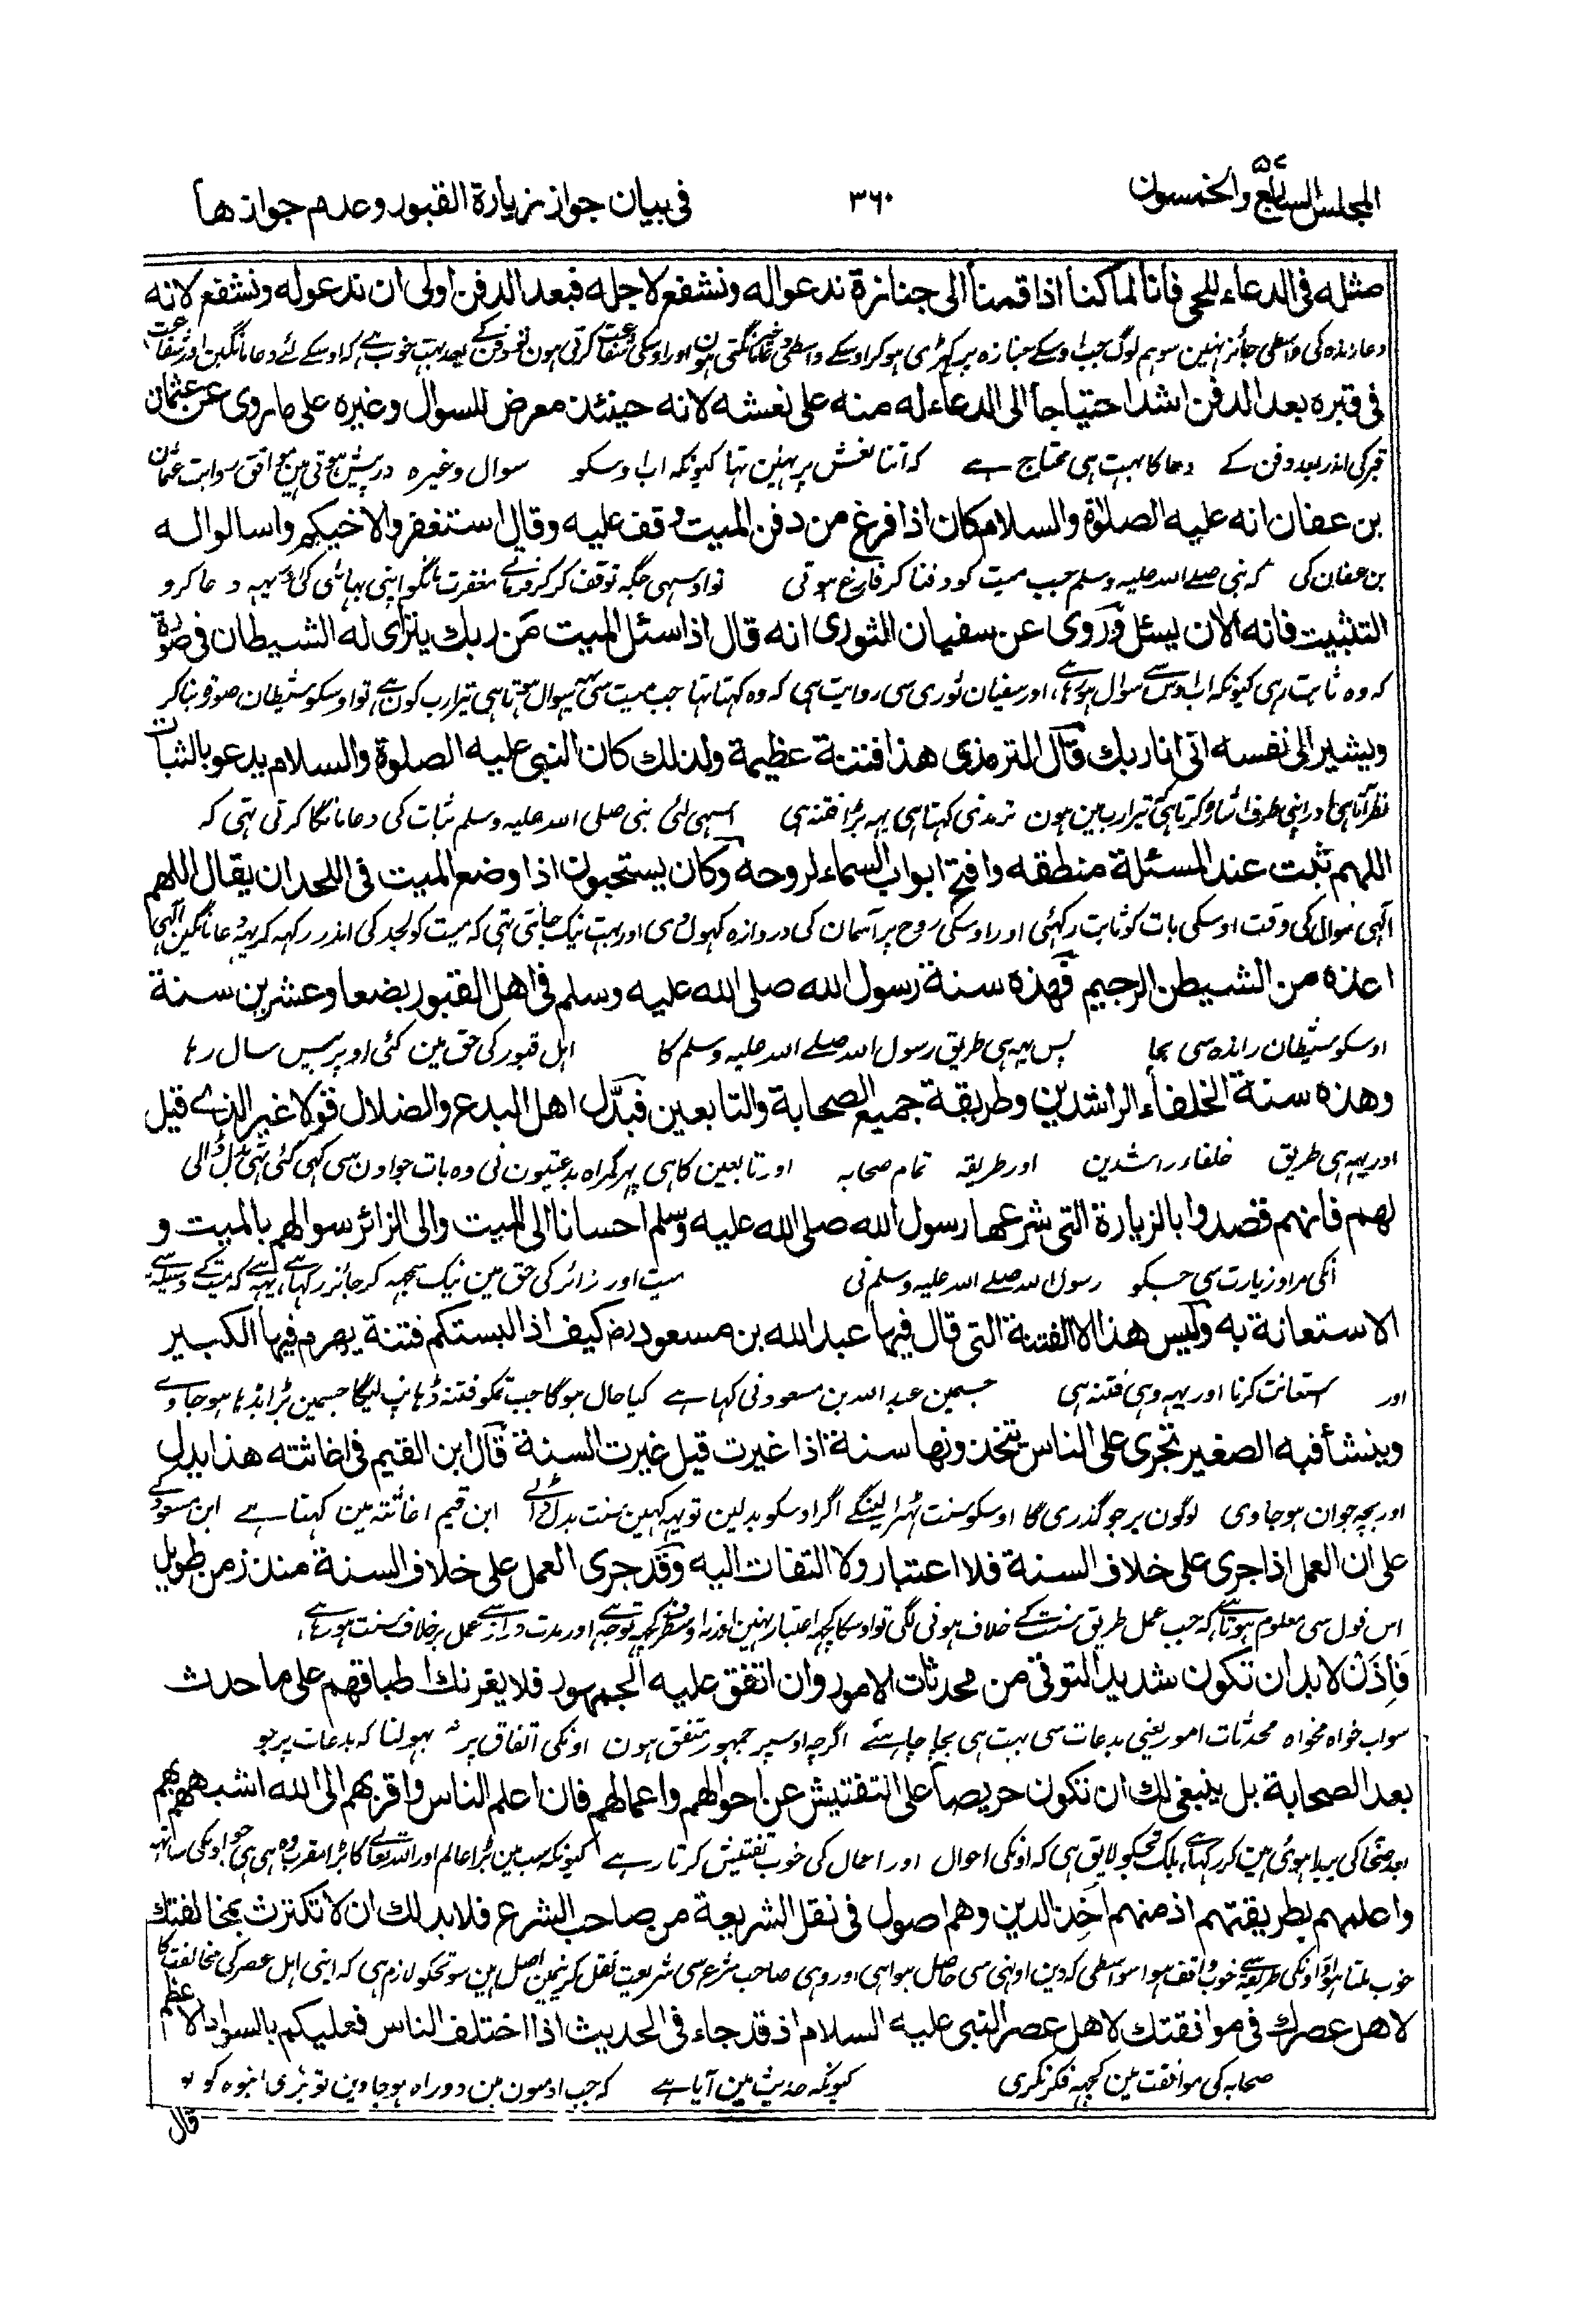 المجلس السابع والخمسون ٥٧
٣٦٠
فى بيان جواز زيارة القبور وعدم جوازها
مثله فى الدعاء للحى فانا لما كنا اذا قمنا الى جنازة ندعو له ونشفع لاجله فبعد الدفن اولى ان ندعو له ونشفع لانه
دعا زنده کی واسطی جائز نہین سو ہم لوگ جب اوسکے جنازہ پر کہڑی ہو کر اوسکے واسطی دعا مانگتی ہون اور اوسکی شفاعت کرتی ہون تو دفن کے بعد بہت خوب ہے کہ اوسکے لئے دعا مانگین اور شفاعت
فى قبره بعد الدفن اشد احتياجا الى الدعاء له منه على نعشه لانه حينئذ معرض للسوال وغيره على ما روى عن عثمان
قبر کی اندر بعد دفن کے دعا کا بہت ہی محتاج ہے کہ اتنا نعش پر نہین تہا کیونکہ اب اوسکو سوال وغیرہ درپیش ہوتی ہین موافق روایت عثمان
بن عفان انه عليه الصلوة والسلام كان اذا فرغ من دفن الميت وقف عليه وقال استغفروا لاخيكم واسالوا له
بن عفان کی کہ نبی صلے اللہ علیہ وسلم جب میت کو دفنا کر فارغ ہوتی تو اوسہی جگہ توقف کر کر فرماتے مغفرت مانگو اپنی بہائی کی اور یہہ دعا کرو
التثبيت فانه الان يسئل وروى عن سفيان الثورى انه قال اذا سئل الميت من ربك يتراى له الشيطان فى صورة
کہ وہ ثابت رہی کیونکہ اب اوس سے سوال ہوتا ہے، اور سفیان ثوری سی روایت ہی کہ وہ کہتا تہا جب میت سی یہہ سوال ہوتا ہی تیرا رب کون ہے تو اوسکو شیطان صورت بنا کر
ويشير الى نفسه انى انا ربك قال الترمذى هذا فتنة عظيمة ولذلك كان النبى عليه الصلوة والسلام يدعو بالثبات
نظر آتا ہی اور اپنی طرف اشارہ کرتا ہی کہ تیرا رب مین ہون ترمذی کہتا ہی یہہ بڑا فتنہ ہی اسہی لئی نبی صلی اللہ علیہ وسلم ثبات کی دعا مانگا کرتی تہی کہ
اللهم ثبت عند المسئلة منطقه وافتح ابواب السماء لروحه وكان يستحبون اذا وضع الميت فى اللحد ان يقال اللهم
الٰہی سوال کی وقت اوسکی بات کو ثابت رکہئی اور اوسکی روح پر آسمان کی دروازہ کہول دی اور بہت نیک جانتی تہی کہ میت کو لحد کی اندر رکہہ کر یہہ دعا مانگین الٰہی
اعذه من الشيطن الرجيم فهذه سنة رسول الله صلى الله عليه وسلم فى اهل القبور بضعا وعشرين سنة
اوسکو شیطان راندہ سی بچا پس یہہ ہی طریق رسول اللہ صلے اللہ علیہ وسلم کا اہل قبور کی حق مین کئی اوپر بیس سال رہا
وهذه سنة الخلفاء الراشدين وطريقة جميع الصحابة والتابعين فبدل اهل البدع والضلال قولا غير الذى قيل
اور یہہ ہی طریق خلفاء راشدین اور طریقہ تمام صحابہ اور تابعین کا ہی پہر گمراہ بدعتیون نی وہ بات جو اون سی کہی گئی تہی بدل ڈالی
لهم فانهم قصدوا بالزيارة التى شرعها رسول الله صلى الله عليه وسلم احسانا الى الميت والى الزائر سوالهم بالميت و
انکی مراد زیارت سی جسکو رسول اللہ صلے اللہ علیہ وسلم نی میت اور زائر کی حق مین نیک سمجہہ کر جائز رکہا ہے، یہہ ہے کہ میت کے وسیلہ سے
الاستعانة به وليس هذا الا الفتنة التى قال فيها عبد الله بن مسعود رض كيف اذا لبستكم فتنة يهرم فيها الكبير
اور استعانت کرنا اور یہہ وہی فتنہ ہی جسمین عبد اللہ بن مسعود نی کہا ہے کیا حال ہوگا جب تمکو فتنہ ڈہانپ لیگا جسمین بڑا بڈہا ہو جاوے
وينشأ فيه الصغير تجرى على الناس يتخذونها سنة اذا غيرت قيل غيرت السنة قال ابن القيم فى اغاثته هذا يدل
اور بچہ جوان ہو جاوی لوگون پر جو گذری گا اوسکو سنت ٹہرا لینگے اگر اوسکو بدلین تو یہہ کہین سنت بدل ڈالے ابن قیم اغاثتہ مین کہتا ہے ابن مسعود کے
على ان العمل اذا جرى على خلاف السنة فلا اعتبار ولا التفات اليه وقد جرى العمل على خلاف السنة منذ زمن طويل
اس قول سی معلوم ہوتا ہے کہ جب عمل طریق سنت کے خلاف ہونی لگی تو اوسکا کچہہ اعتبار نہین اور نہ اوسطرف کچہہ توجہ ہے اور مدت دراز سے عمل بر خلاف سنت ہو رہا ہے،
فاذن لا بد ان تكون شديد التوقى من محدثات الامور وان اتفق عليه الجمهور فلا يغرنك اطباقهم على ما حدث
سو اب خواہ مخواہ محدثات امور یعنی بدعات سی بہت ہی بچا چاہئے اگرچہ اوسپر جمہور متفق ہون اونکی اتفاق پر نہ بہولنا کہ بدعات پر ہو
بعد الصحابة بل ينبغى لك ان تكون حريصا على التفتيش عن احوالهم واعمالهم فان اعلم الناس واقربهم الى الله اشبههم بهم
بعد صحابہ کی پیدا ہوئی ہین کر رکہا ہے، بلکہ تجکو لایق ہی کہ اونکی احوال اور اعمال کی خوب تفتیش کرتا رہے کیونکہ سب مین بڑا عالم اور اللہ تعالے کا بڑا مقرب وہ ہی ہی جو اونکی ساتہہ
واعلمهم بطريقتهم اذ منهم اخذ الدين وهم اصول فى نقل الشريعة من صاحب الشرع فلا بد لك ان لا تكترث بمخالفتك
خوب ملتا ہوا اور اونکی طریقہ سے خوب واقف ہوا سواسطی کہ دین اونہی سی حاصل ہوا ہی اور وہی صاحب شرع سی شریعت نقل کرنیمین اصل ہین سو تجکو لازم ہی کہ اپنی اہل عصر کی مخالفت کا
لاهل عصرك فى موافقتك لاهل عصر النبى عليه السلام اذ قد جاء فى الحديث اذا اختلف الناس فعليكم بالسواد الاعظم
صحابہ کی موافقت مین کچہہ فکر نکری کیونکہ حدیث مین آیا ہے کہ جب ادمیون مین دو راہ ہو جاوین تو بڑی انبوہ کو لو
قال